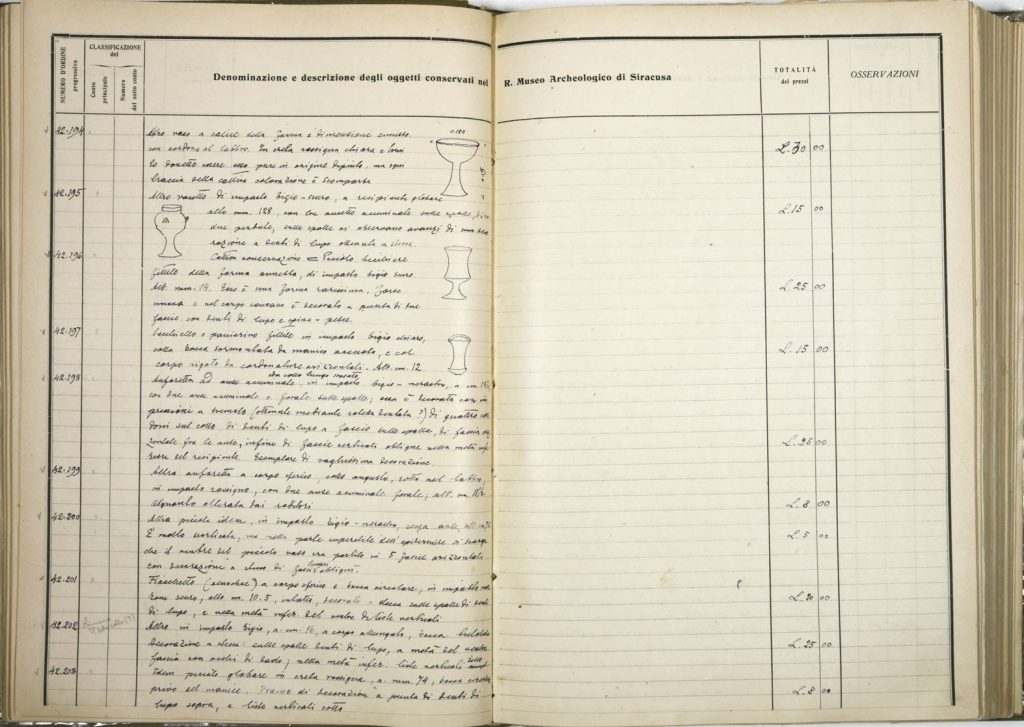 NUMERO D'ORDINE progressivo
CLASSIFICAZIONE del
Conto principale
Numero del sotto conto
Denominazione e descrizione degli oggetti conservati nel R. Museo Archeologico di Siracusa
TOTALITÀ dei prezzi
OSSERVAZIONI
42.194
Altro vaso a calice della forma e dimensione
con cordone al labbro. In creta rossigna chiara e
lo dovette essere esso pure in origine dipinto, ma ogni
traccia della colorazione è scomparsa
L. 30 00
42.195
Altro vasetto di impasto bigio-scuro, a recipiente globare
alto mm. 128, con due ansette acuminate sulle spalle,
due perdute, sulle spalle si osservano avanzi di una deco
razione a denti di lupo ottenuta a stecco.
L. 15 00
42.196
conservazione = Piccolo bicchiere
fittile della forma annessa, di impasto bigio scuro.
Alt. mm. 14. Esso è una forma rarissima, forse
nuova e nel corpo concavo è decorato a punta di due
fascie con denti di lupo e spina-pesce.
L. 25 00
42.197
Secchiello o panierino fittile in impasto bigio chiaro,
colla bocca sormontata da manico arcuato, e col
corpo rigato da cordonature orizzontali. Alt. cm. 12
L. 15 00
42.198
con collo lungo
Anforetta ad anse acuminate, in impasto bigio-nerastro, a cm.
con due anse acuminate e forate sulle spalle; essa è decorata con im
pressioni a tremolo (ottenute mediante rotella dentata?) di quattro cor
doni sul collo di denti di lupo a fascio sulle spalle, di fascia oriz
zontale fra le anse, infine di fascie verticali oblique nella metà infe
riore del recipiente. Esemplare di vaghissima decorazione.
L. 25 00
42.199
Altra anforetta a corpo sferico, collo angusto, rotto nel labbro,
in impasto rossigno, con due anse acuminate forate; alt. cm.
alquanto alterata dai roditori
L. 8 00
42.200
Altra piccola idem, in impasto bigio-nerastro, senza anse, alt. cm.
È molto scorticata, ma nella parte superstite dell'epidermide si scorge
che il ventre del piccolo vaso era partito in 5 fascie orizzontali
con decorazione a stecco di fasci obliqui.
L. 5 00
42.201
Fiaschetto (oinochoe) a corpo sferico e bocca circolare, in impasto mar
rone scuro, alto cm. 10.5, intatto, decorato a stecca sulle spalle di denti
di lupo, e nella metà infer. del ventre di liste verticali
L. 20 00
42.202
Altro in impasto bigio, a cm. 16, a corpo allungato, bocca trilobata
Decorazione a stecco: sulle spalle denti di lupo, a metà del ventre
fascia con occhi di dado; nella metà infer. liste verticali
L. 25 00
42.203
Idem piccolo globare in creta rossigna, a mm. 74, bocca circolare
privo del manico. Tracce di decorazione a punta di denti di
lupo sopra, e liste verticali sotto
L. 8 00